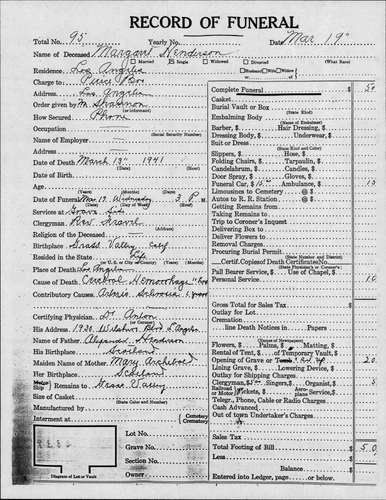 RECORD OF FUNERAL
Total No. 95 Yearly No. Date Mar 19"
Name of Deceased Margaret Henderson
Married Single Widowed Divorced (What Race)
Residence Los Angeles
Charge to Pierce Bros
Address Los Angeles
Order given by
How Secured Phone
Occupation
(Social Security Number)
Name of Employer
Address
Date of Death March 13th 1941
Date of Birth
Age
(Years) (Months) (Days)
Date of Funeral Mar 19 Wednesday 3 P. M.
(Date) (Day of Week)
Services at Grave Side
Clergyman Rev
Religion of the Deceased
Birthplace Grass Valley Calif
Resided in the State Life
Place of Death Los Angeles
Cause of Death Cerebral Hemorrhage
Contributory Causes
Certifying Physician Dr
His Address 1930 Wilshire Blvd L Angeles
Name of Father Alexander Henderson
His Birthplace Scotland
Maiden Name of Mother Mary Archibald
Her Birthplace Scotland
Ship Remains to Grass Valley
Size of Casket
(State Color and Number)
Manufactured by
Interment at Cemetery Crematory
Lot No.
Grave No.
Section No.
Owner
Diagram of Lot or Vault
Complete Funeral $ 50
Casket
Burial Vault or Box
(State Kind)
Embalming Body
(Name of Embalmer)
Barber, $ Hair Dressing, $
Dressing Body, $ Underwear, $
Suit or Dress
(State Kind and Color)
Slippers, $ Hose, $
Folding Chairs, $ Tarpaulin, $
Candelabrum, $ Candles, $
Door Spray, $ Gloves, $
Funeral Car, $ 15 Ambulance, $ 15
Limousines to Cemetery @ $
Autos to R. R. Station @ $
Getting Remains from
Taking Remains to
Trip to Coroner's Inquest
Delivering Box to
Deliver Flowers to
Removal Charges
Procuring Burial Permit
(State Number and District)
Certif. Copies of Death Certificates No.
(State Physician's or Coroner's)
Pall Bearer Service, $ Use of Chapel, $
Personal Service 10
Gross Total for Sales Tax
Outlay for Lot
Cremation
line Death Notices in Papers
(Names of Newspapers)
Flowers, $ Palms, $ Matting, $
Rental of Tent, $ of Temporary Vault, $
Opening of Grave or Tomb 20
Lining Grave, $ Lowering Device, $
Outlay for Shipping Charges
Clergyman, $ 5 Singers, $ Organist, $ 5
Railroad or Motor Tickets, $ Aeroplane Service, $
Telegr., Phone, Cable or Radio Charges
Cash Advanced
Out of town Undertaker's Charges
Sales Tax
Total Footing of Bill $ 50
Less
Balance
Entered into Ledger, page or below.